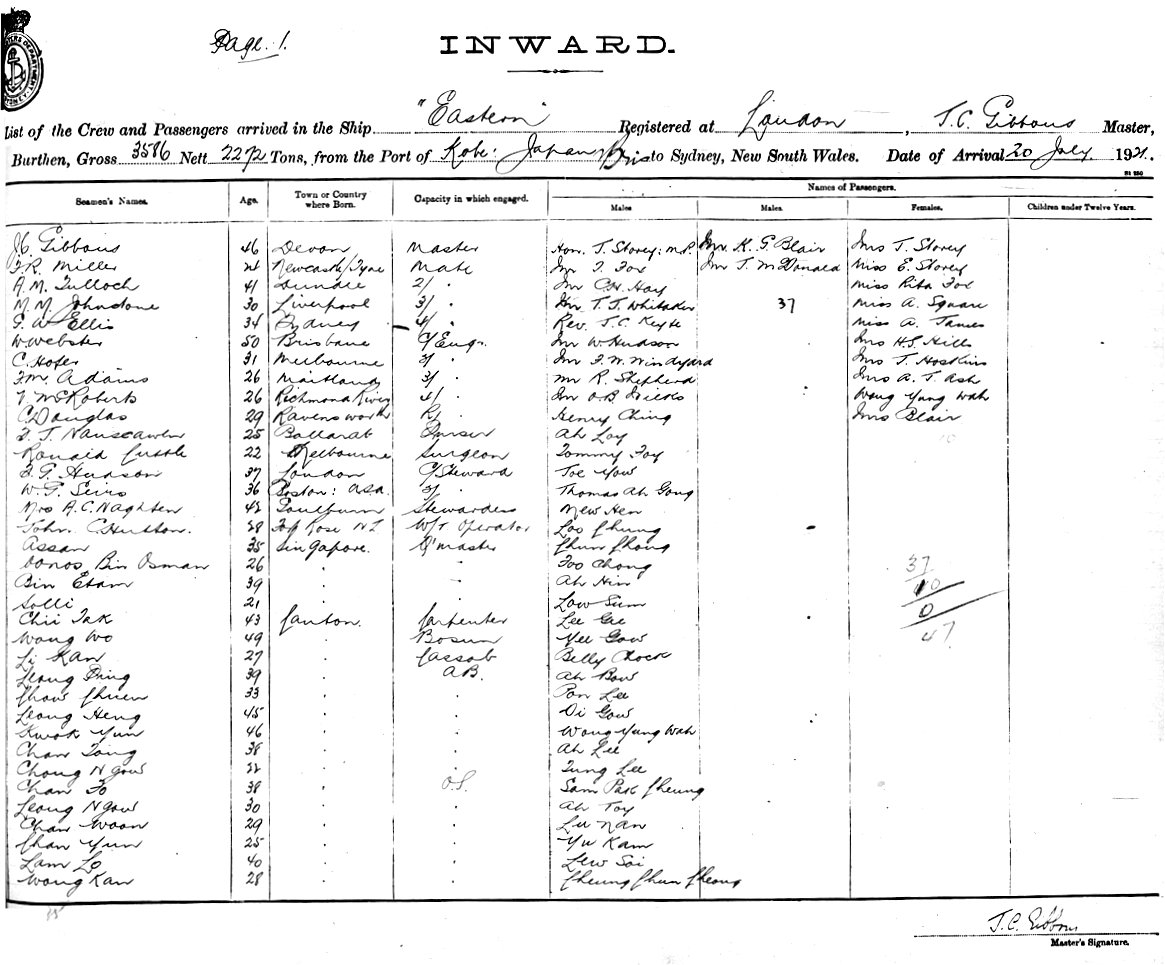 Page. 1.
INWARD.
List of the Crew and Passengers arrived in the Ship "Eastern" Registered at London, J.C. Gibbons Master,
Burthen, Gross 3586 Nett 2272 Tons, from the Port of Kobe: Japan to Sydney, New South Wales. Date of Arrival 20 July 1921.
Seamen's Names. Age. Town or Country where Born. Capacity in which engaged. Names of Passengers.
Males Males Females. Children under Twelve Years.
J.C. Gibbons 46 Devon Master Hon. T. Storey: M.P. Mr. K. G. Blair Mrs T. Storey
F.R. Miller Newcastle/Tyne Mate Mr F. Fox Mr J. McDonald Miss E. Storey
A.M. Tulloch 41 Dundee 2/ " Mr C.H. Hay Miss Rita Fox
M.M. Johnstone 30 Liverpool 3/ " Mr T. J. Whitaker 37 Miss A. Square
G. A. Ellis 34 Sydney 4/ " Rev. J.C. Keyte Miss A. James
W. Webster 50 Brisbane C/Engr. Mr W Hudson Mrs H.S. Hills
C. Hofer 31 Melbourne " Mr F. W. Windyard Mrs T. Hoskins
F.M. Adams 26 Maitland 3/ " Mr R. Shepherd Mrs A. J. Ash
McRoberts 26 Richmond River 4/ " Mr O.B. Wong Yung Wah
C. Douglas 29 Ravensworth R/ " Henry Ching Mrs Blair
F. J. Nanscawen 25 Ballarat Purser Ah Loy
Ronald Cuttle 22 Melbourne Surgeon Tommy Foy
F. G. Hudson 37 London C/Steward Joe Yow
W. G. Seirs 36 Boston: USA. " Thomas Ah Gong
Mrs A.C. Naghten 42 Goulburn Stewardess Mew Hen
John. C. Hutton. 28 NZ W/T Operator Loo Cheung
Assan 35 Singapore. Q'master Chun Chong
Bin Osman 26 " " Foo Chong
Bin Etam 39 " " Ah Hin
Solli 21 " " Low Sum
Chii Tak 43 Canton. Carpenter Lee Gee
Wong Wo 49 " Bosun Yee Gow
Li Kan 27 " Cassab Billy Chock
Leong Ping 39 " A.B. Ah Bow
Chow Chuen 33 " " Pon Lee
Leong Heng 45 " " Di Gow
Kwok Yun 46 " " Wong Yung Wah
Chan Tong 38 " " Ah Lee
Chong N gow 22 " " Tung Lee
Chan Fo 38 " O.S. Sam Pak Cheung
Leong N gow 30 " " Ah Toy
Chan Woon 29 " " Lu Nan
Chan Yun 25 " " Yu Kam
Lam Lo 40 " " Lew Soi
Wong Kan 28 " " Cheung Chun Cheong
37
10
0
47
35
J.C. Gibbons
Master's Signature.